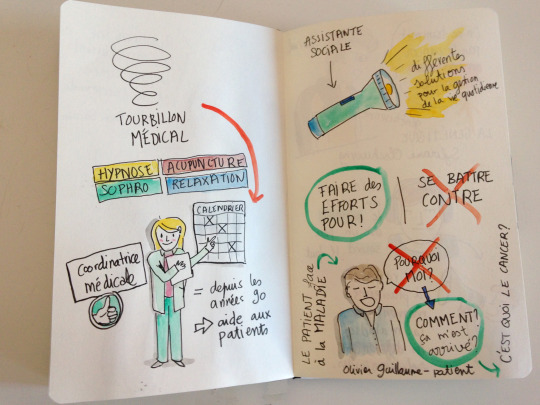 TOURBILLON
MÉDICAL
HYPNOSE
ACUPUNCTURE
SOPHRO
RELAXATION
CALENDRIER
Coordinatrice
médicale
= depuis les
années 90
⇨ aide aux
patients
ASSISTANTE
SOCIALE
différentes
solutions
pour la gestion
de la vie quotidienne
FAIRE des
EFFORTS
POUR!
SE BATTRE
CONTRE
LE PATIENT face
à la MALADIE
POURQUOI
MOI?
COMMENT?
ça m'est
arrivé?
C'EST QUOI LE CANCER?
Olivier Guillaume - patient